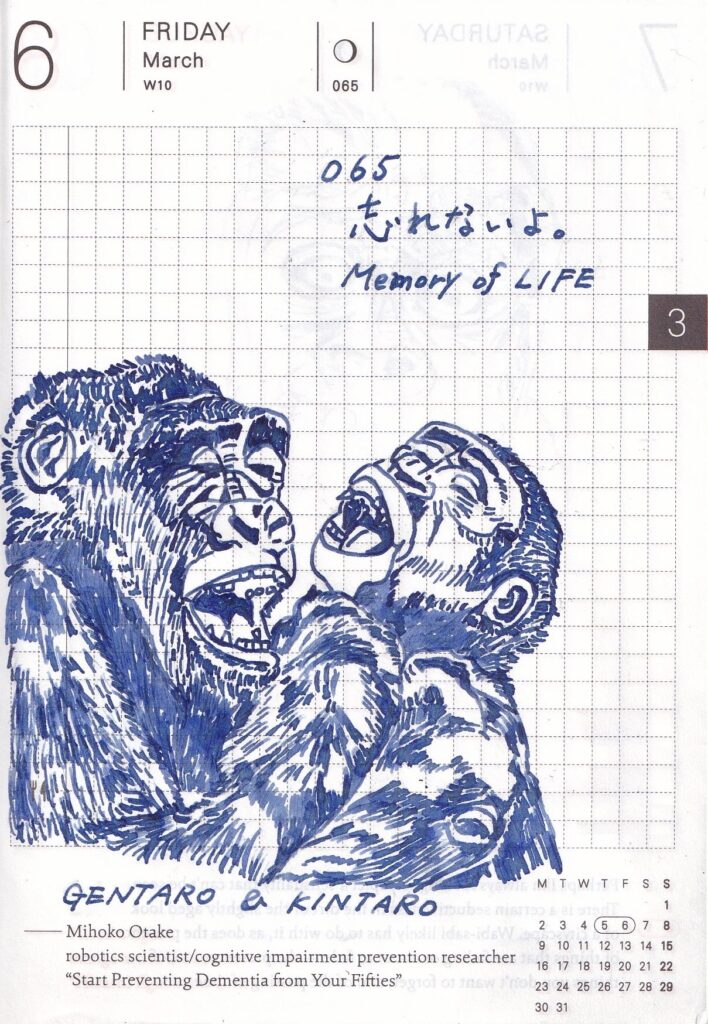 6
FRIDAY
March
W10
065
065
忘れないよ。
Memory of LIFE
3
GENTARO & KINTARO
Mihoko Otake
robotics scientist/cognitive impairment prevention researcher
“Start Preventing Dementia from Your Fifties”
M T W T F S S
1
2 3 4 5 6 7 8
9 10 11 12 13 14 15
16 17 18 19 20 21 22
23 24 25 26 27 28 29
30 31